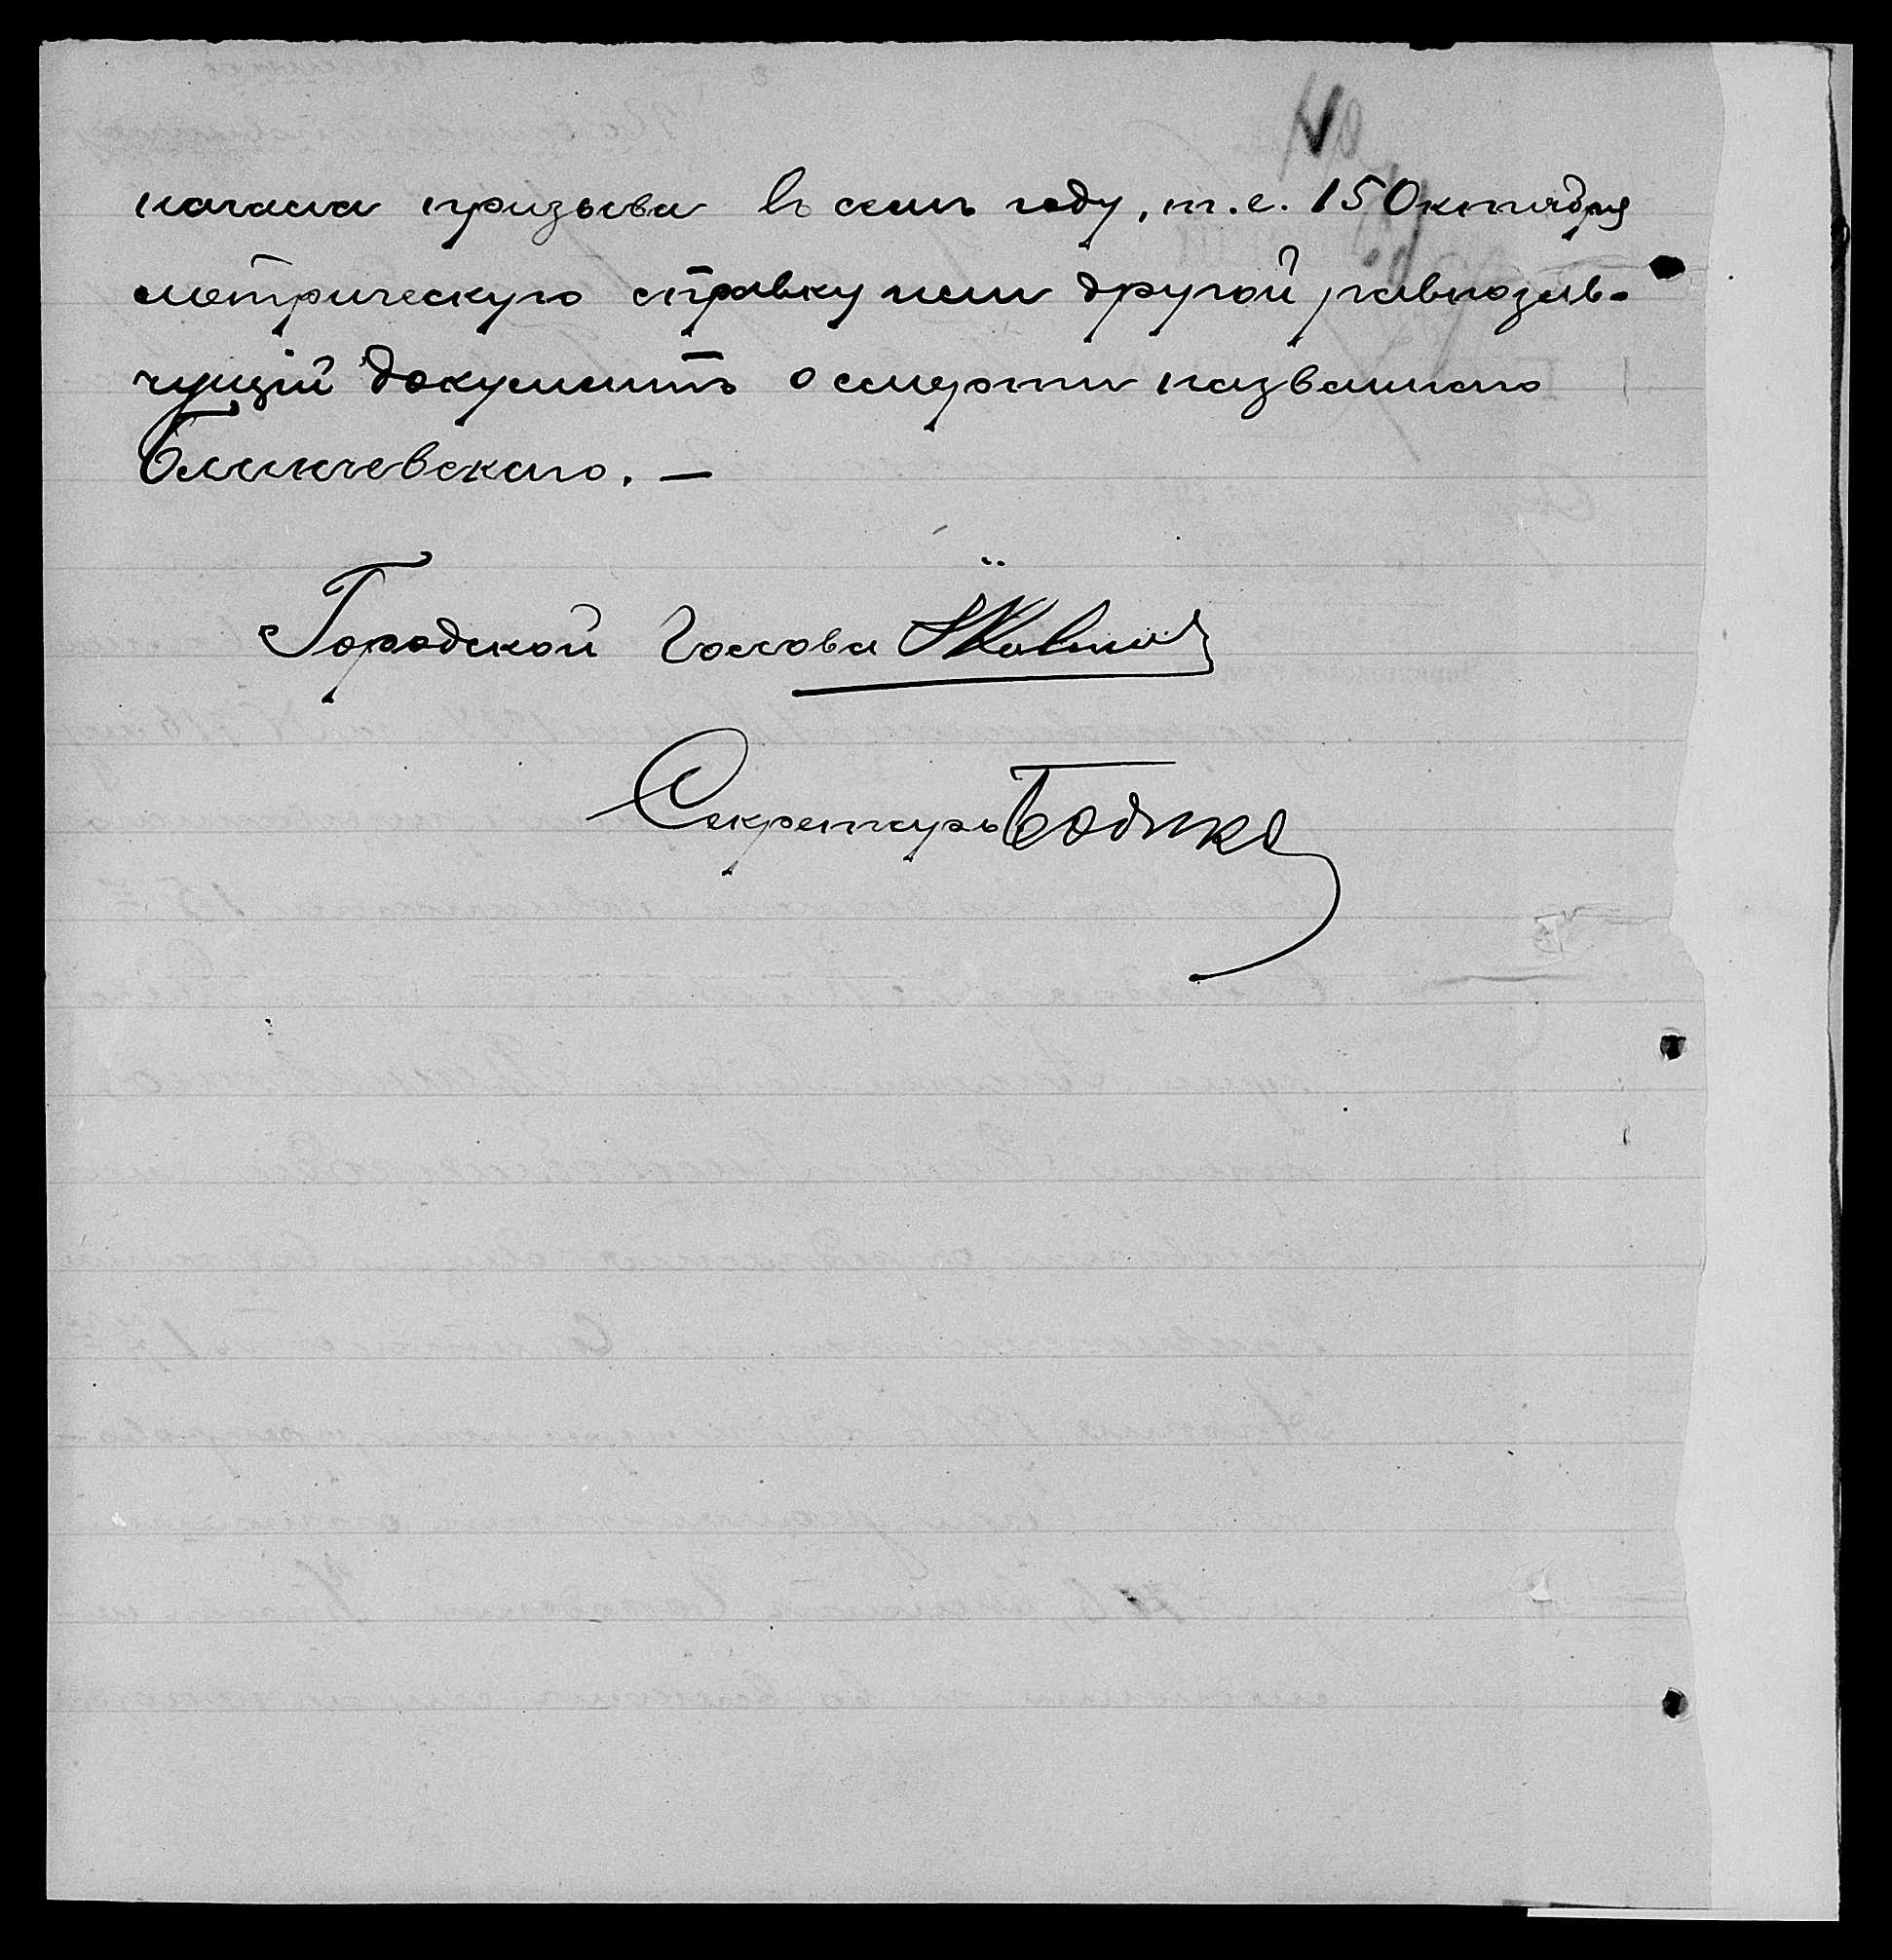 начала призыва въ семъ году, т.е. 15 Октября
метрическую справку или другой равнозна-
чущій документъ о смерти названнаго
Блинчевскаго. —
Городской Голова
Секретарь Бодико